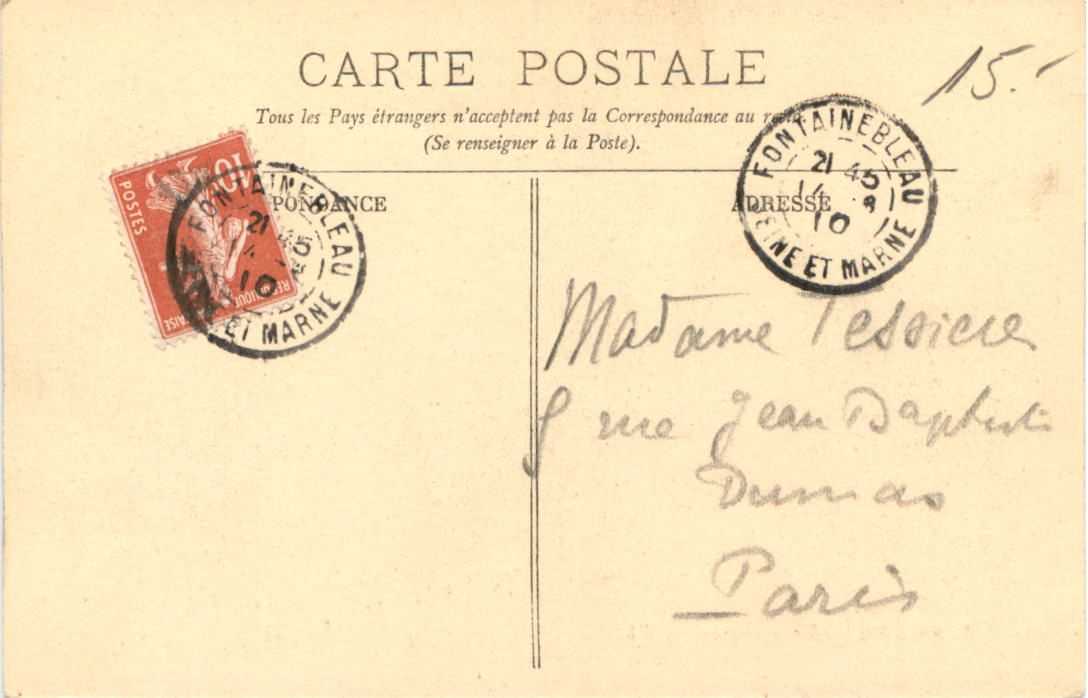 CARTE POSTALE
15.-
Tous les Pays étrangers n'acceptent pas la Correspondance au
(Se renseigner à la Poste).
PONDANCE
ADRESSE
10
POSTES
FONTAINEBLEAU
21 45
14
10
ET MARNE
FONTAINEBLEAU
21 45
14 8
10
SEINE ET MARNE
Madame Tessiere
rue Jean Baptiste
Dumas
Paris